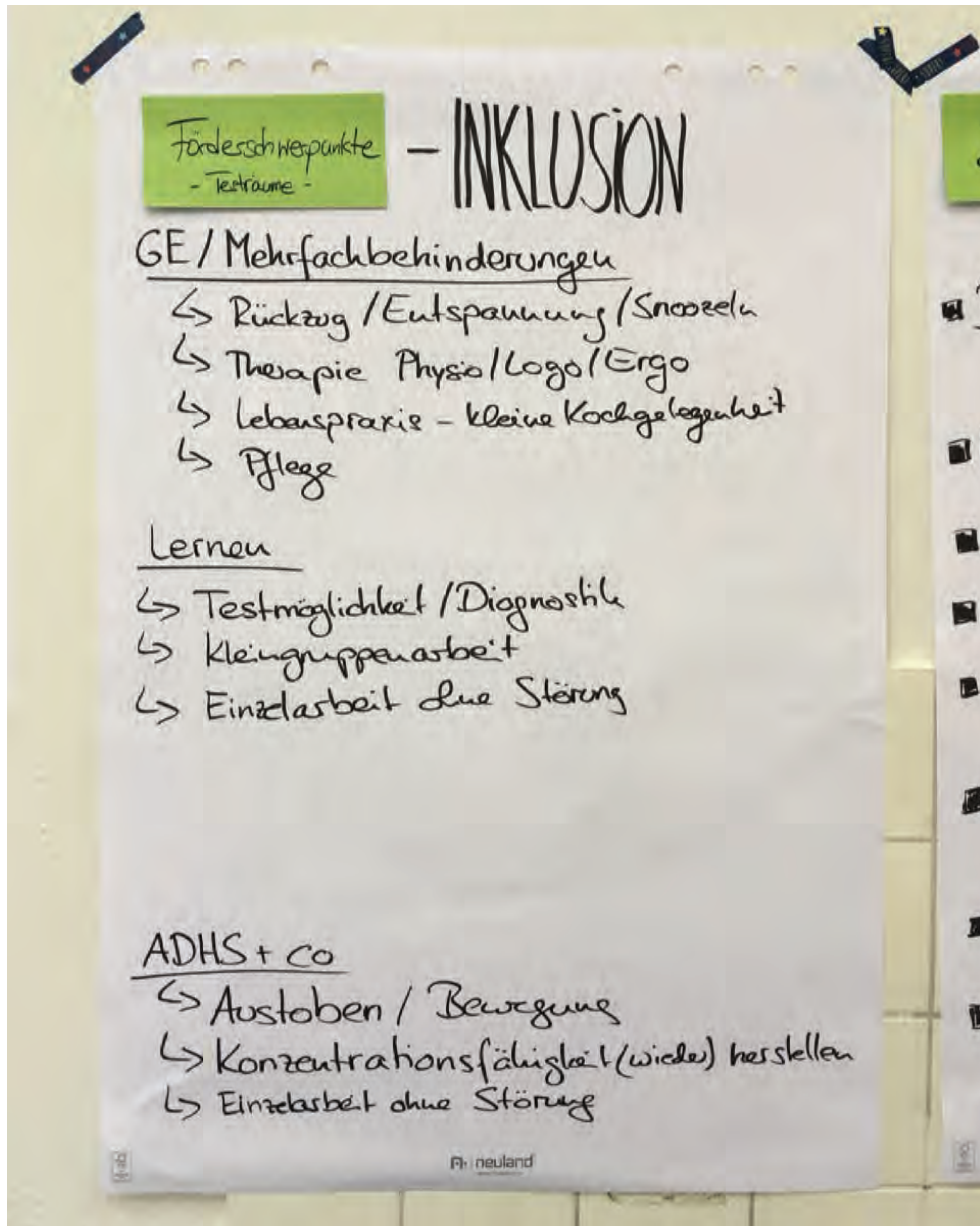 Förderschwerpunkte
- Testräume -
- INKLUSION
GE / Mehrfachbehinderungen
↳ Rückzug / Entspannung / Snoozeln
↳ Therapie Physio / Logo / Ergo
↳ Lebenspraxis - kleine Kochgelegenheit
↳ Pflege
Lernen
↳ Testmöglichkeit / Diagnostik
↳ Kleingruppenarbeit
↳ Einzelarbeit ohne Störung
ADHS + Co
↳ Austoben / Bewegung
↳ Konzentrationsfähigkeit (wieder) herstellen
↳ Einzelarbeit ohne Störung
neuland